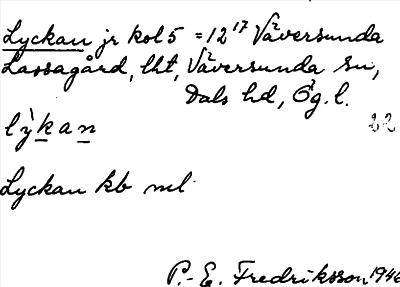 Lyckan jr kol 5 = 12 17 Väversunda
Lassagård, lht, Väversunda sn,
Dals hd, Ög. l.
lỳkan 22
Lyckan kb ml
P.-E. Fredriksson 1946